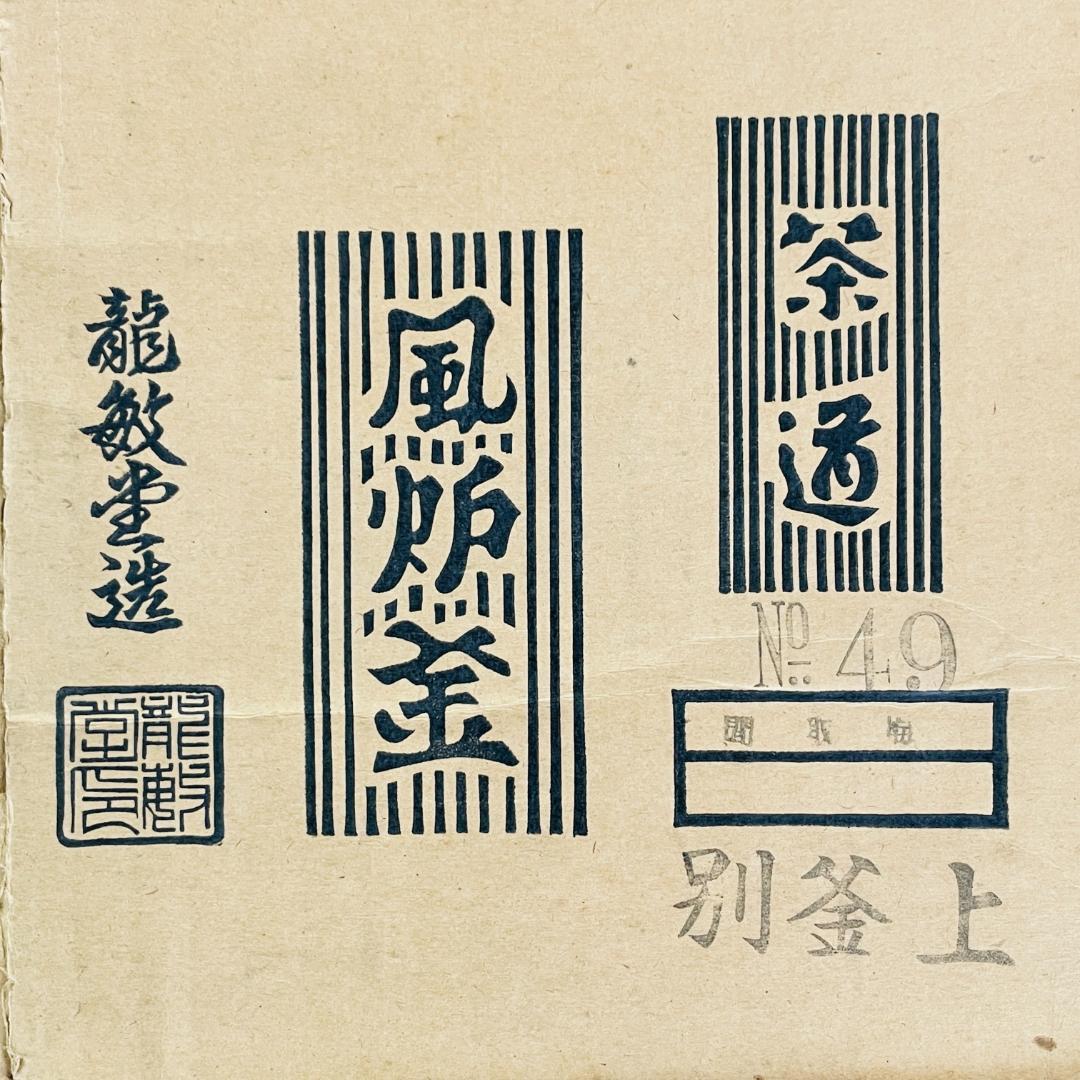 茶道
No 49
上釜別
風炉釜
龍敏堂造
龍敏堂印